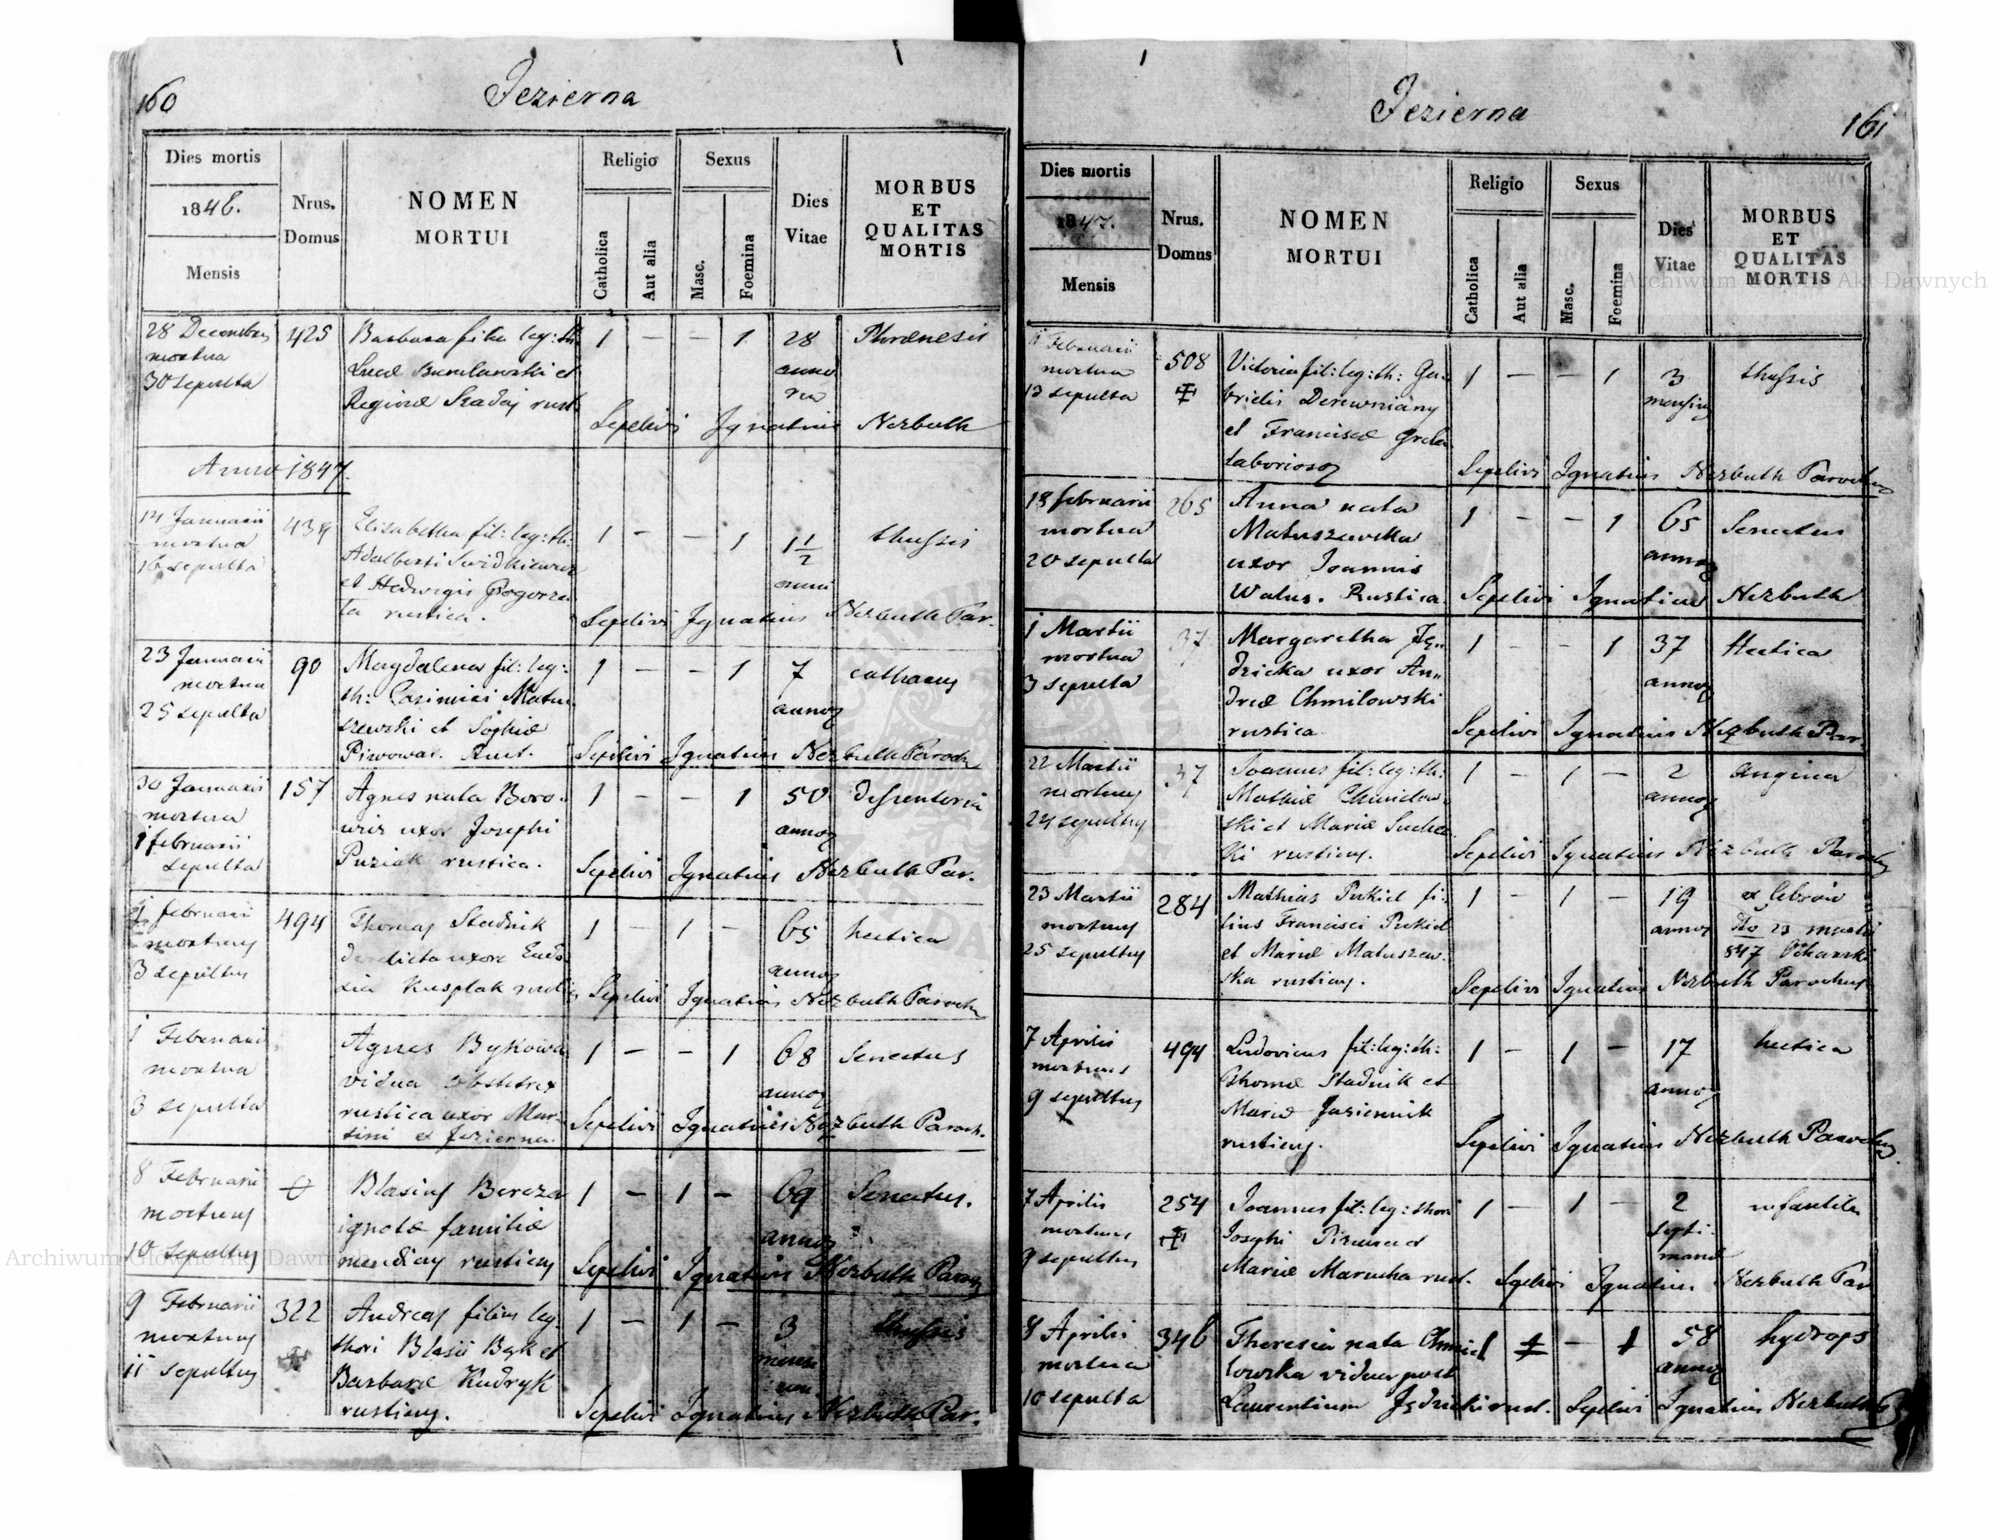 160
Jezierna
Dies mortis
1846.
Mensis
Nrus.
Domus
NOMEN
MORTUI
Religio
Catholica
Aut alia
Sexus
Masc.
Foemina
Dies
Vitae
MORBUS
ET
QUALITAS
MORTIS
28 Decembris
mortua
30 sepulta
425
Barbara filia leg: th:
Lucæ et
Reginæ rust.
1 — — 1
28
anno
rum
Sepelivi Ignatius Nezbuth
Anno 1847.
14 Januarii
mortua
16 sepulta
439
Elisabetha fil: leg: th:
Adalberti
et Hedvigis
rustica.
1 - — 1
1 1/2
anni
thussis
Sepelivi Ignatius Nezbuth Par.
23 Januarii
mortua
25 sepulta
90
Magdalena fil: leg:
th: Casimiri Matu
szewski et Sophiæ
Piwowar. Rust.
1 — — 1
7
annor
Sepelivi Ignatius Nezbuth Paroch
30 Januarii
mortua
1 februarii
sepulta
157
Agnes nata Boro
wicz uxor Josephi
Puziak rustica.
1 — — 1
50
annor
Sepelivi Ignatius Nezbuth Par.
1 februarii
mortuus
3 sepultus
494
Thomas Stadnik
derelicta uxore
1 — 1 —
65
annor
hectica
Sepelivi Ignatius Nezbuth Paroch
1 Februarii
mortua
3 sepulta
Agnes Bykowa
vidua obstetrix
rustica uxor Mar
tini ex Jezierna.
1 — — 1
68
annor
Senectus
Sepelivi Ignatius Nezbuth Paroch.
8 Februarii
mortuus
10 sepultus
Blasius Bereza
ignotæ familiæ
mendicus rusticus
1 — 1 —
69
annor
Senectus.
Sepelivi Ignatius Nezbuth Paroch
9 Februarii
mortuus
11 sepultus
322
Andreas filius leg:
thori Blasii Byk et
Barbaræ Kudryk
rusticus.
1 — 1 —
3
mensi
um
thussis
Sepelivi Ignatius Nezbuth Par.
Jezierna
161
Dies mortis
1847.
Mensis
Nrus.
Domus
NOMEN
MORTUI
Religio
Catholica
Aut alia
Sexus
Masc.
Foemina
Dies
Vitae
MORBUS
ET
QUALITAS
MORTIS
Februarii
mortua
13 sepulta
508
Victoria fil: leg: th: Ga
brielis Derewniany
et Franciscæ
laborioso
1 — — 1
3
mensium
thussis
Sepelivi Ignatius Nezbuth Parochus
18 februarii
mortua
20 sepulta
265
Anna nata
Matuszewska
uxor Joannis
Walus. Rustica
1 — — 1
65
annor
Senectus
Sepelivi Ignatius Nezbuth
1 Martii
mortua
3 sepulta
37
Margaretha Ję„
dzicka uxor An„
dreæ Chmilowski
rustica
1 — — 1
37
annor
Hectica
Sepelivi Ignatius Nezbuth Par.
22 Martii
mortuus
24 sepultus
37
Joannes fil: leg: th:
Mathiæ
ski et Mariæ
ki rusticus.
1 — 1 —
2
annor
angina
Sepelivi Ignatius Nezbuth Paroch
23 Martii
mortuus
25 sepultus
284
Mathias Pukiel fi
lius Francisci Pukiel
et Mariæ Matuszew
ska rusticus.
1 — 1 —
19
annor
23 martii
847
Sepelivi Ignatius Nezbuth Parochus
7 Aprilis
mortuus
9 sepultus
494
Ludovicus fil: leg: th:
Thomæ Stadnik et
Mariæ
rusticus.
1 — 1 —
17
annor
hectica
Sepelivi Ignatius Nezbuth Parochus
7 Aprilis
mortuus
9 sepultus
254
Joannes fil: leg: thori
Josephi
Mariæ Marucha rust.
1 — 1 —
2
septi
manæ
Sepelivi Ignatius Nezbuth Par
8 Aprilis
mortua
10 sepulta
346
Theresia nata Chmie
lowska vidua post
Laurentium Jędzicki rust.
1 — 1
58
annor
hydrops
Sepelivi Ignatius Nezbuth
Archiwum Główne Akt Dawnych
Archiwum Główne Akt Dawnych